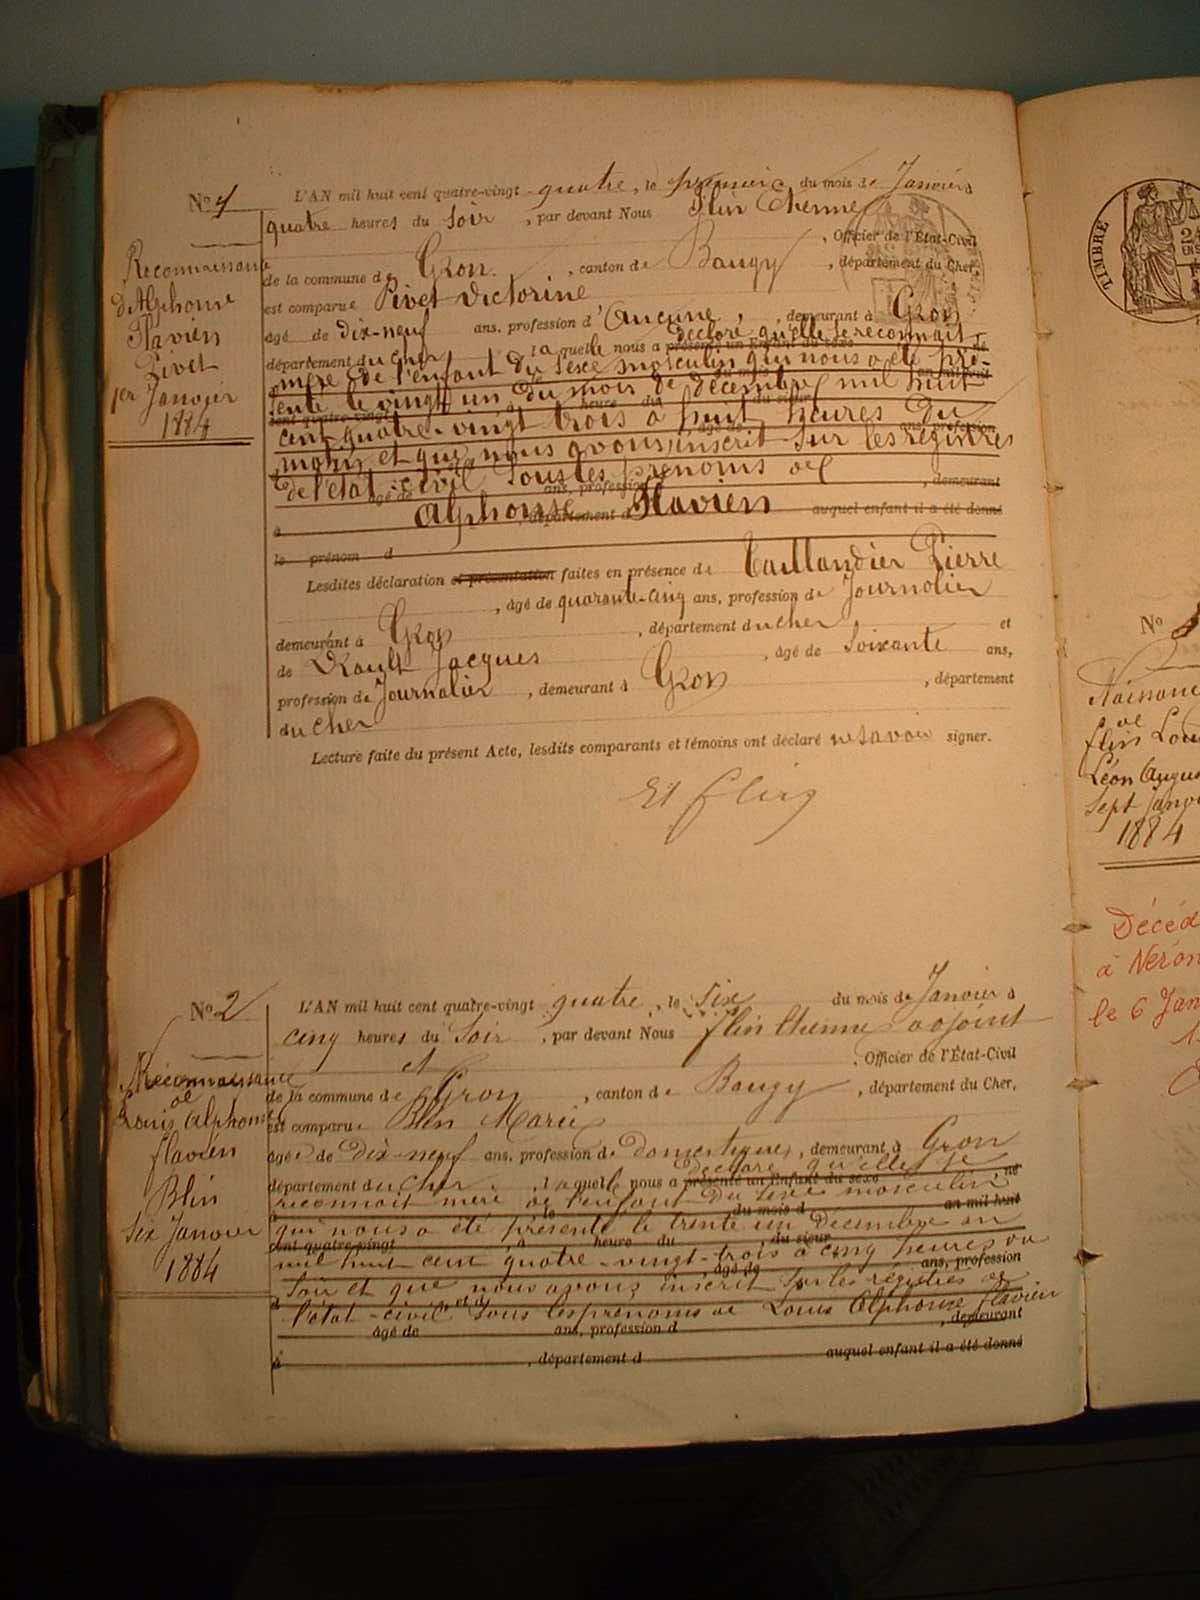 N° 1
Reconnaissance
d'Alphonse
Flavien
Pivet
1er Janvier
1884
L'AN mil huit cent quatre-vingt quatre, le premier du mois de Janvier à
quatre heures du soir, par devant Nous Flin Etienne
, Officier de l'État-Civil
de la commune de Gron, canton de Baugy, département du Cher,
est comparue Pivet Victorine
âgé de dix-neuf ans, profession d'Aucune, demeurant à Gron
département du Cher, laquelle nous a présenté un Enfant du sexe déclaré qu'elle se reconnait
mère de l'enfant du sexe masculin qui nous a été pré-
senté le vingt un du mois de décembre mil huit
cent quatre-vingt trois à huit heures du
matin et que nous avons inscrit sur les régistres
de l'état-civil sous les prénoms de
âgé de ans, profession , demeurant
Alphonse Flavien
à , département d auquel enfant il a été donné
le prénom d
Lesdites déclaration et présentation faites en présence de Taillandier Pierre
, âgé de quarante-cinq ans, profession de Journalier
demeurant à Gron, département du cher et
de Rault Jacques, âgé de soixante ans,
profession de Journalier, demeurant à Gron, département
du Cher
Lecture faite du présent Acte, lesdits comparants et témoins ont déclaré ne savoir signer.
Et Flin
N° 2
Reconnaissance
de
Louis Alphonse
flavien
Blin
Six Janvier
1884
L'AN mil huit cent quatre-vingt quatre, le six du mois de Janvier à
cinq heures du Soir, par devant Nous flin Etienne adjoint
et , Officier de l'État-Civil
de la commune de Gron, canton de Baugy, département du Cher,
est comparue Blin Marie
âgée de dix-neuf ans, profession de domestique, demeurant à Gron
département du Cher, laquelle nous a présenté un Enfant du sexe déclaré qu'elle se
reconnait mère de l'enfant du sexe masculin
le du mois d an mil huit
qui nous a été présenté le trente un Décembre an
cent quatre-vingt , à heure du , du sieur
mil huit cent quatre-vingt-trois à cinq heures du
, âgé de ans, profession
Soir et que nous avons inscrit sur les régistres de
d et d
l'état-civil sous les prénoms de Louis Alphonse flavien
âgé de ans, profession d , demeurant
à , département d auquel enfant il a été donné
TIMBRE
N°
Naissance
de
flin Lou
Léon Augus
Sept Janvi
1884
Décéd
à Néron
le 6 Jan